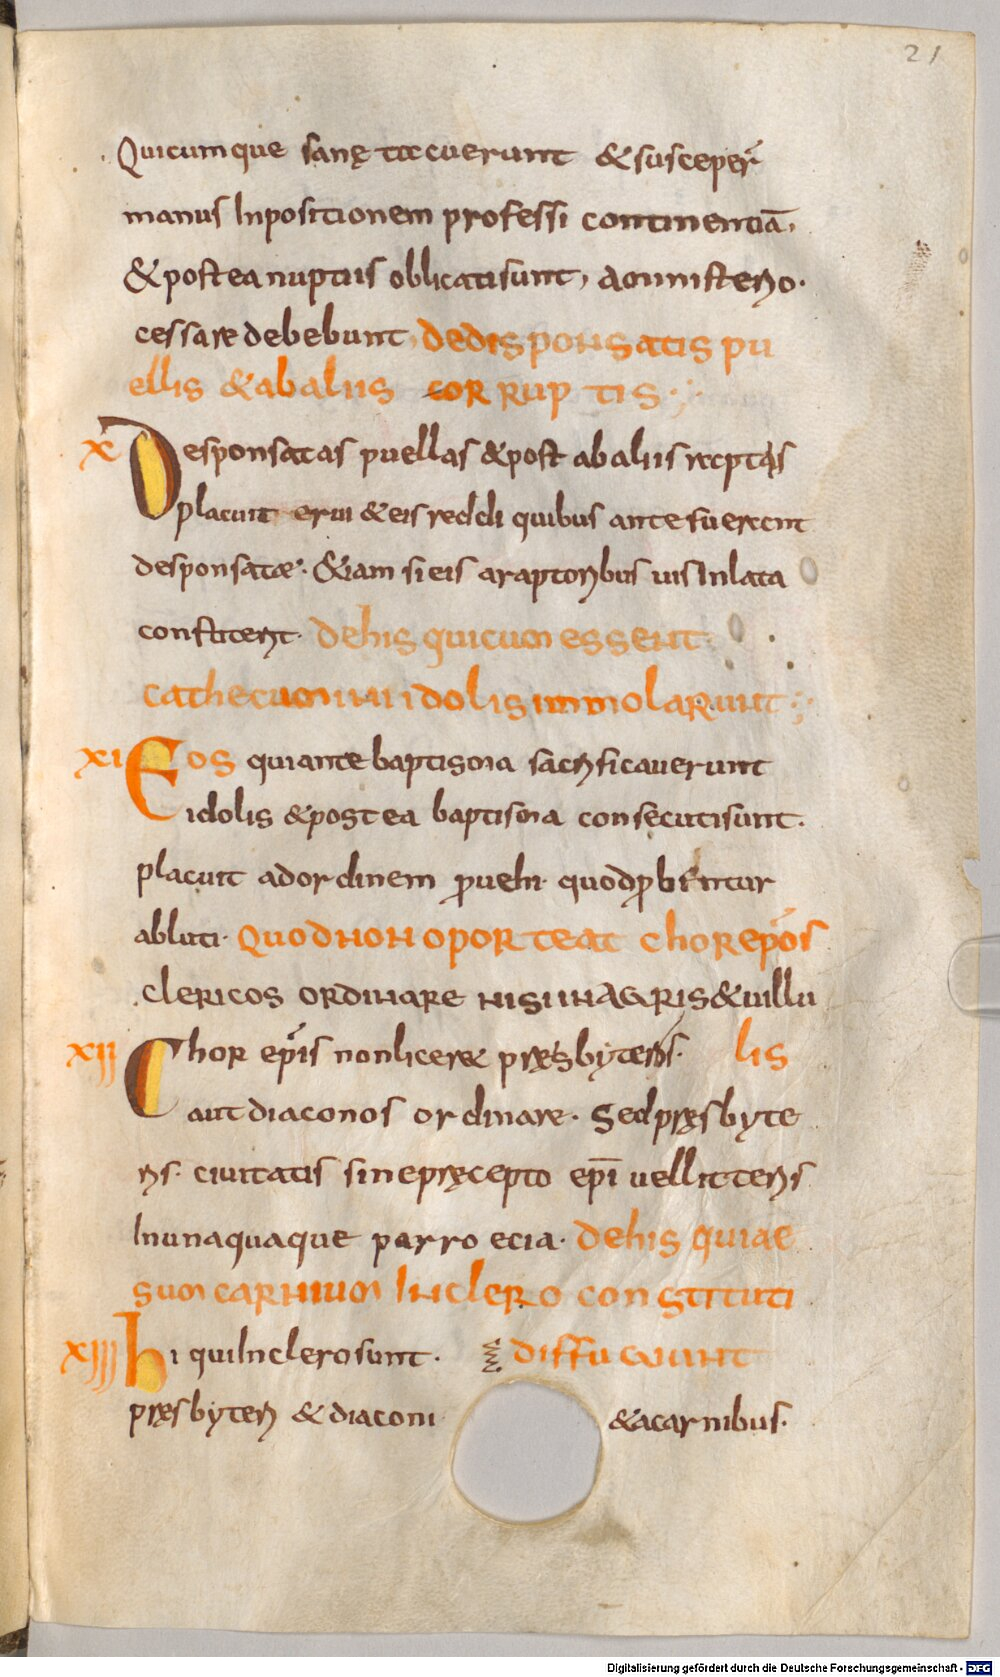 21
Quicumque sanę tacuerunt & susceper̃
manus Inpositionem professi continentiā,
& postea nuptiis oblicati sunt, a ministerio.
cessare debebunt, de disponsatis pu
ellis & ab aliis corruptis
X Desponsatas puellas & post ab aliis receptas
placuit erui & eis reddi quibus ante fuerant
desponsatæ. &iam si eis a raptoribus uis Inlata
constiterit. de his qui cum essent
cathecumini idolis immolarunt
XI Eos qui ante baptisma sacrificauerunt
idolis & postea baptisma consecuti sunt.
placuit ad ordinem ꝓuehi. quod ꝓbentur
abluti. Quod non oporteat chorep̃os
clericos ordinare nisi in agris & uillu
XII Chor ep̃is non licere pręsbyteros. lis
aut diaconos ordinare. Sed pręsbyte
ris. ciuitatis sine pręcepto ep̄i uel litteris
In unaquaque parroecia. de his qui ae
sum carnium In clero constituti
XIII hi qui In clero sunt. diffugiunt
pręsbyteri & diaconi & a carnibus.
Digitalisierung gefördert durch die Deutsche Forschungsgemeinschaft - DFG